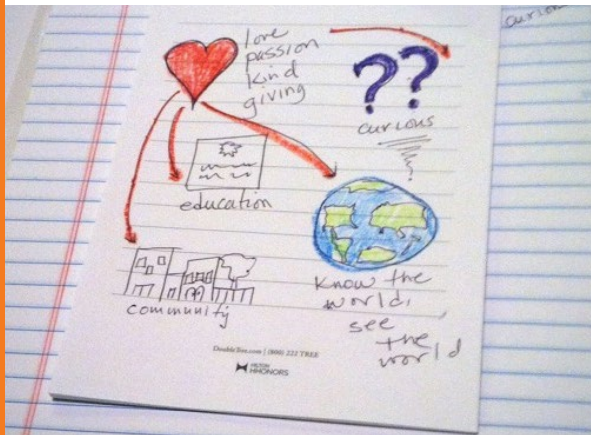 love
passion
kind
giving
curious
education
community
know the
world,
see
the
world
DoubleTree.com | (800) 222 TREE
HILTON
HHONORS